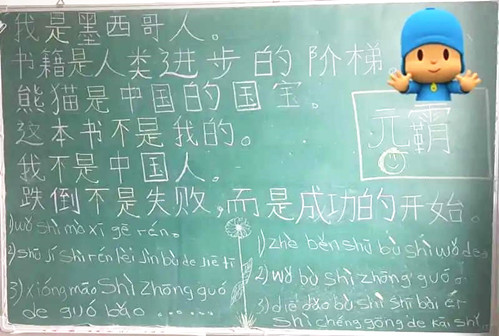 我是墨西哥人。
书籍是人类进步的阶梯。
熊猫是中国的国宝。
这本书不是我的。
元霸
我不是中国人。
跌倒不是失败,而是成功的开始。
1) wǒ shì mò xī gē rén。
2) shū jí shì rén lèi jìn bù de jiē tī
3) xióng māo shì zhōng guó
de guó bǎo ......
1) zhè běn shū bù shì wǒ de。
2) wǒ bù shì zhōng guó
3) diē dǎo bù shì shī bài ér
shì chéng gōng de kāi shǐ